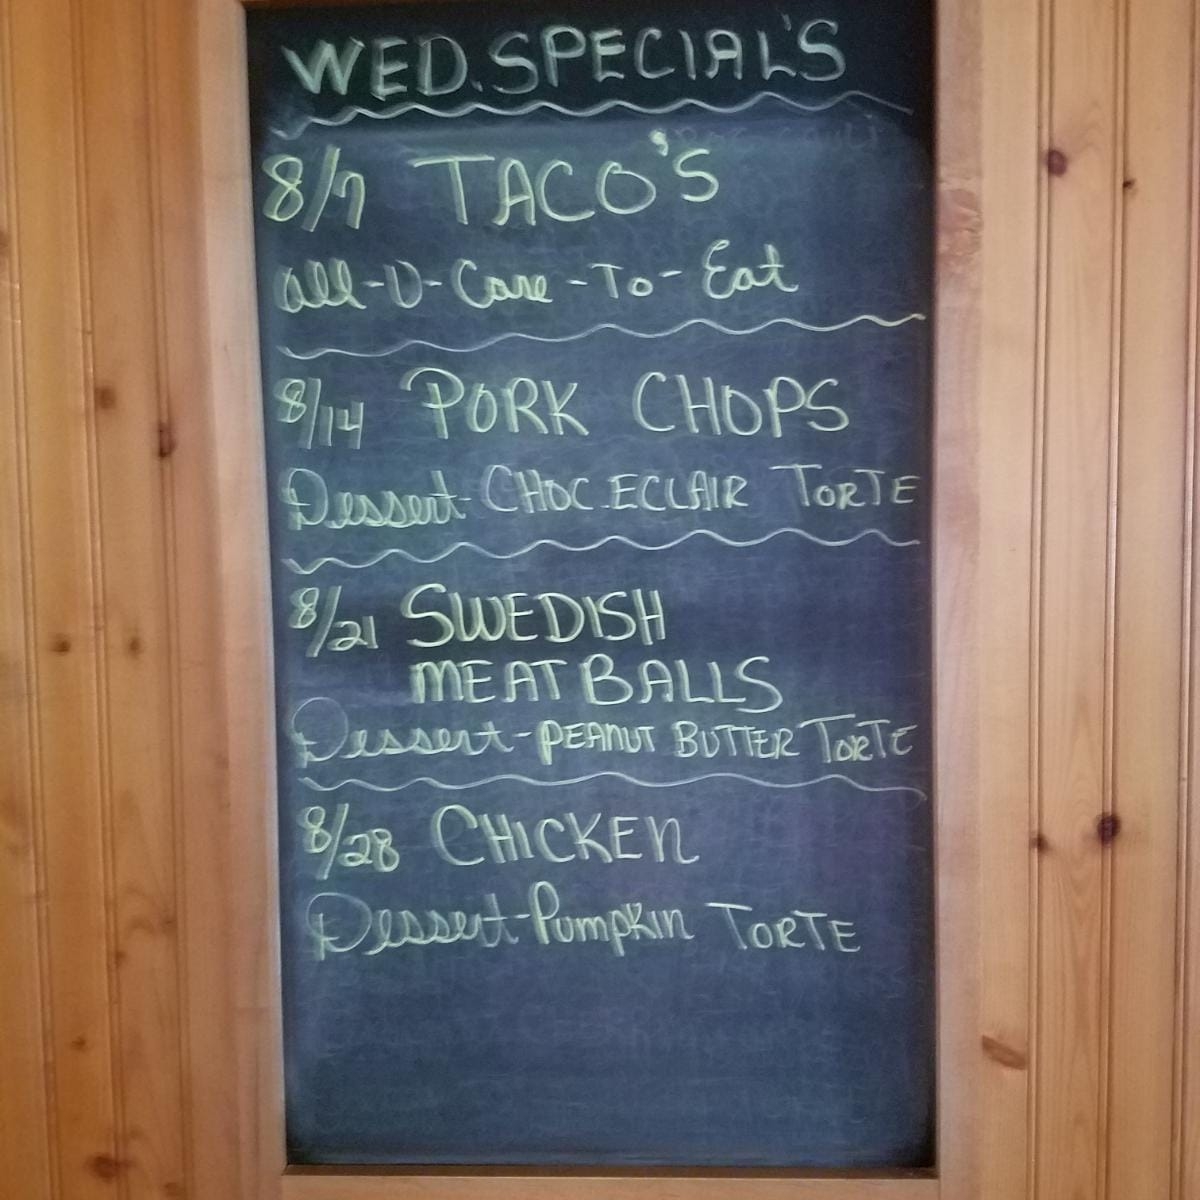 WED. SPECIAL'S
8/7 TACO'S
all-U-Care-To-Eat
8/14 PORK CHOPS
Dessert-CHOC. ECLAIR TORTE
8/21 SWEDISH
MEATBALLS
Dessert-PEANUT BUTTER TORTE
8/28 CHICKEN
Dessert-Pumpkin TORTE